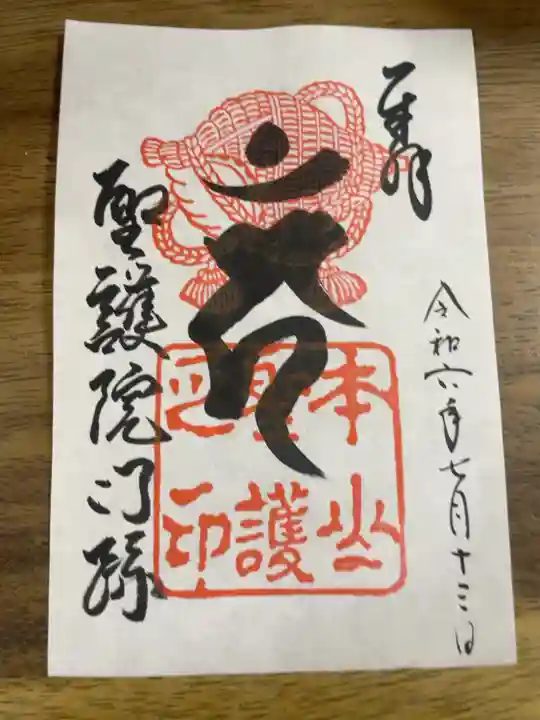 奉拝
令和六年七月十三日
本山
聖護
印
聖護院门跡